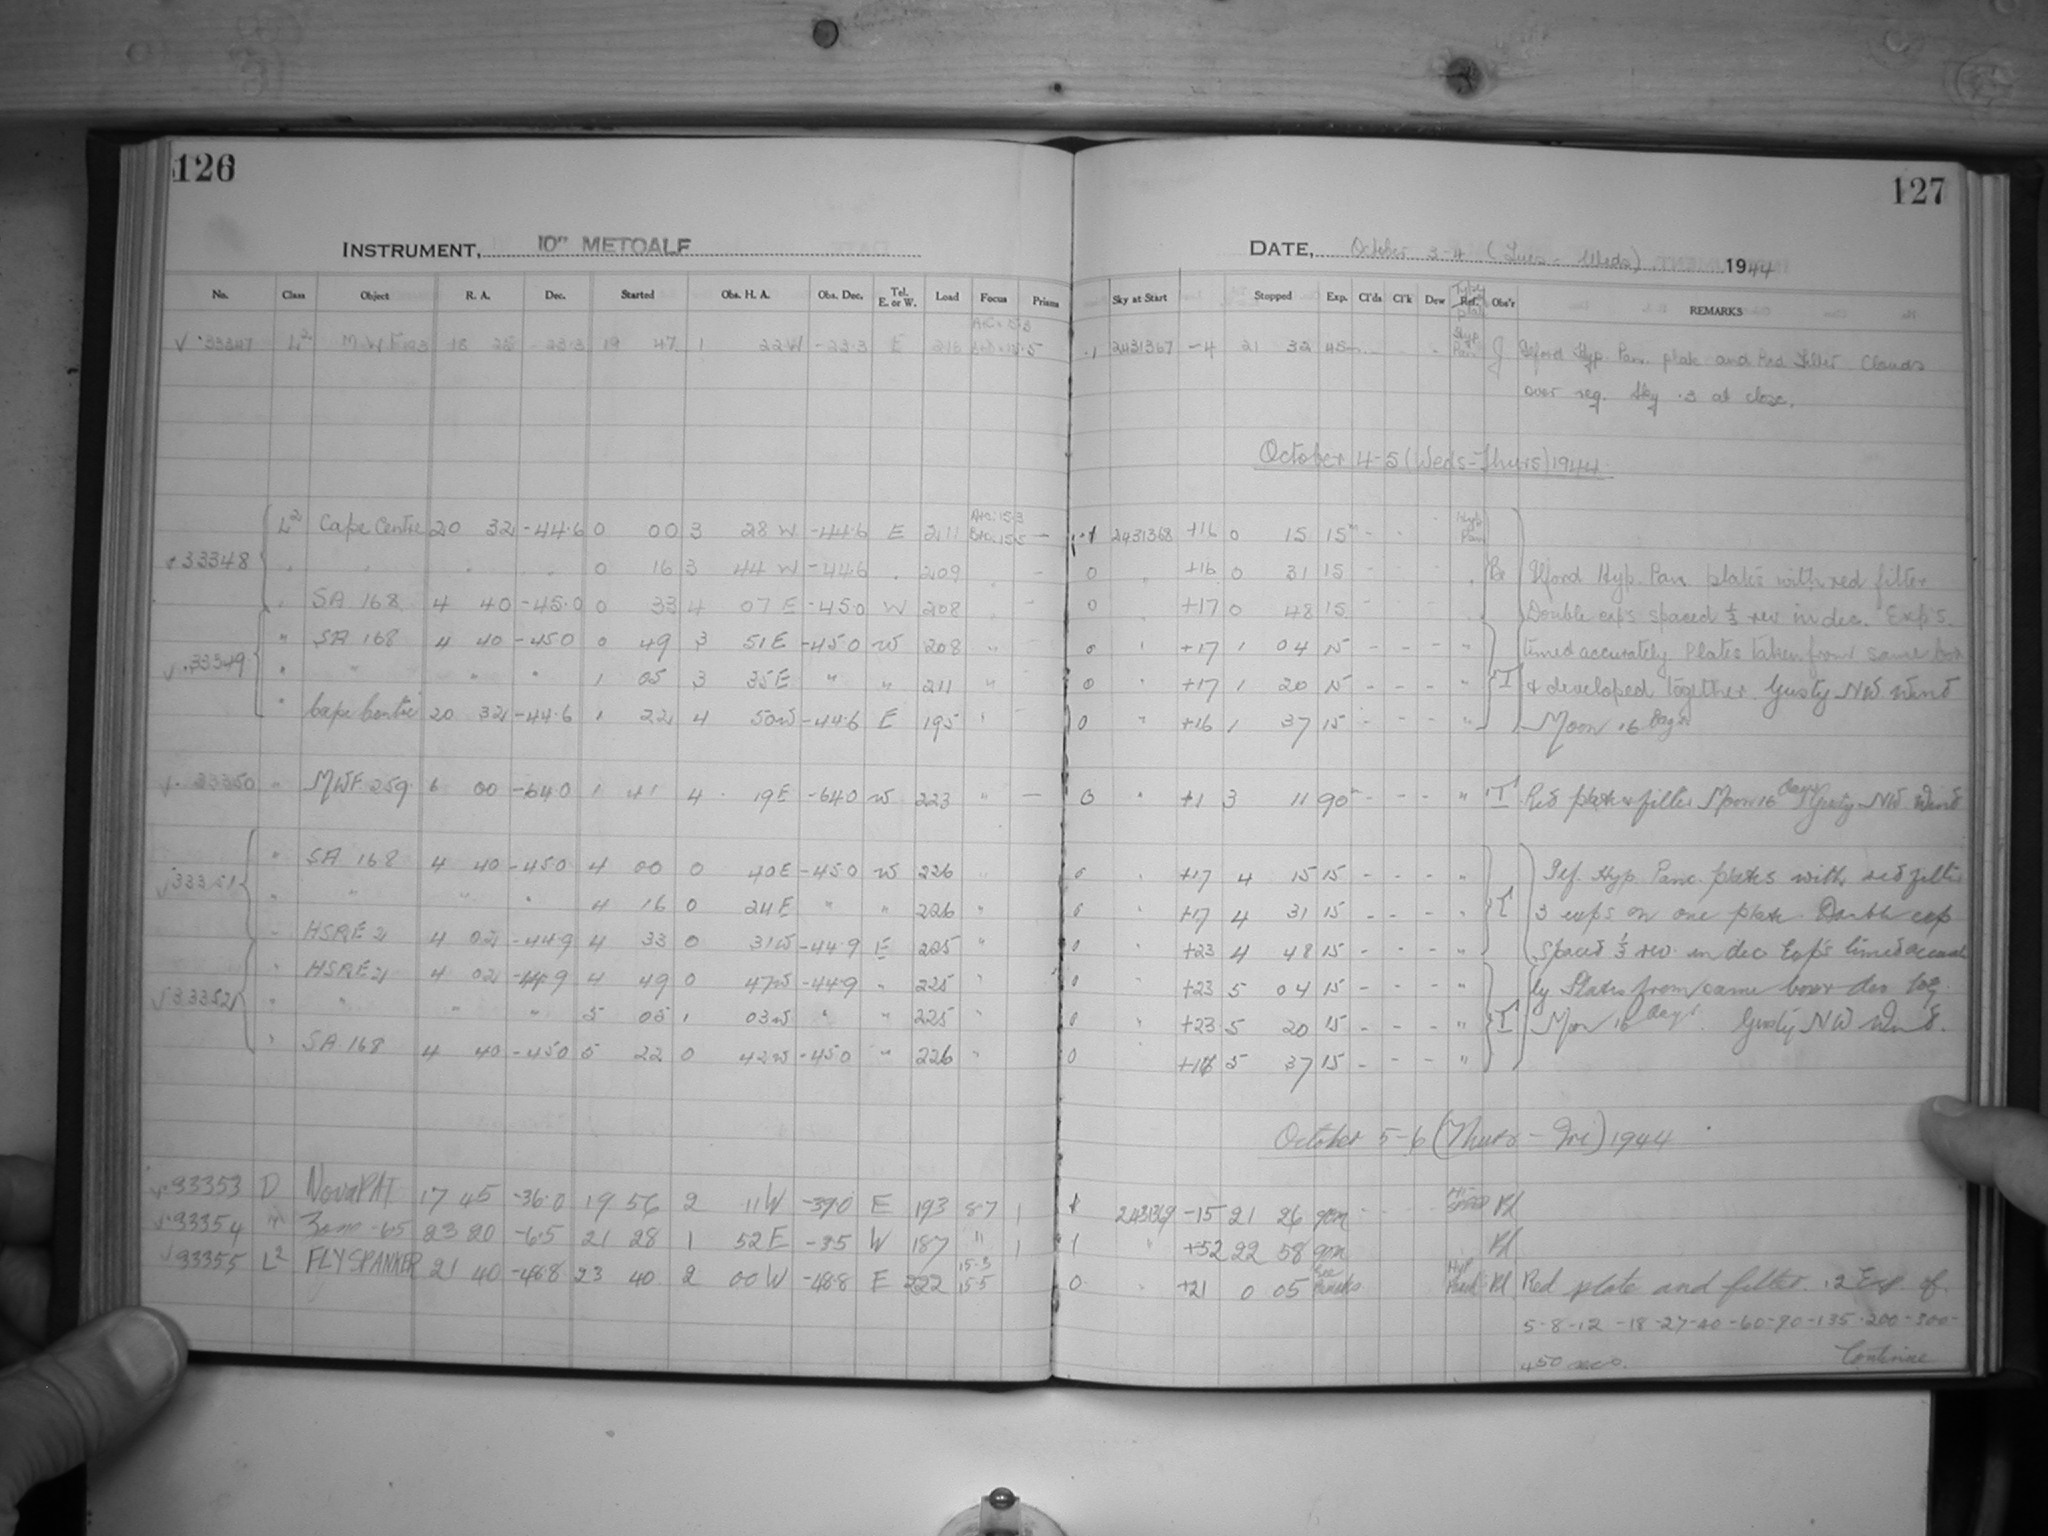 126
127
INSTRUMENT, 10" METCALF
DATE, October 3-4 (Tues - Weds) 1944
No. Class Object R. A. Dec. Started Obs. H. A. Obs. Dec. Tel. E. or W. Load Focus Prisms Sky at Start Stopped Exp. Cl'ds Cl'k Dew Ref. Type plate Obs'r REMARKS
33347 L2 18 25 -23.3 19 47 1 22W -23.3 E .1 2431367 -4 21 32 45m J Ilford Hyp. Pan. plate and Red Filter Clouds
over reg. Sky .3 at close.
October 4-5 (Weds-Thurs) 1944
33348 L2 Cape Centre 20 32 -44.6 0 00 3 28 W -44.6 E 211 2431368 +16 0 15 15m - - Hyp. Pan
" " " " 0 16 3 44 W -44.6 " 209 " - 0 " +16 0 31 15 Br Ilford Hyp. Pan. plates with red filter
" SA 168 4 40 -45.0 0 33 4 07 E -45.0 W 208 " - 0 " +17 0 48 15 Double exps spaced 1/3 rev in dec. Exp's.
33349 " SA 168 4 40 -45.0 0 49 3 51 E -45.0 W 208 " 0 " +17 1 04 15 - - - " timed accurately Plates taken from same box
" " " " 1 05 3 35 E " " 211 " 0 " +17 1 20 15 - - - " T & developed together Gusty NW Wind
" Cape Centre 20 32 -44.6 1 22 4 50W -44.6 E 195 " 0 " +16 1 37 15 - - - " Moon 16 Days
33350 " MWF 259 6 00 -64.0 1 41 4 19 E -64.0 W 223 " - 0 " +1 3 11 90m - - - " T Red plate & filter Moon 16 days Gusty NW Wind
33351 " SA 168 4 40 -45.0 4 00 0 40 E -45.0 W 226 " 0 " +17 4 15 15 - - - " Ilf. Hyp. Panc. plates with red filter
" " " " 4 16 0 24 E " " 226 " 0 " +17 4 31 15 - - - " T 3 exps on one plate. Double exp
" HSRE 21 4 02 -44.9 4 33 0 31W -44.9 E 225 " 0 " +23 4 48 15 - - - " spaced 1/3 rev. in dec Exps timed accurate
33352 " HSRE 21 4 02 -44.9 4 49 0 47W -44.9 " 225 " 0 " +23 5 04 15 - - - " ly Plates from same box & dev tog.
" " " " 5 05 1 03W " " 225 " 0 " +23 5 20 15 - - - " T Moon 16 days. Gusty NW Wind.
" SA 168 4 40 -45.0 5 22 0 42W -45.0 " 226 " 0 5 37 15 - - - "
October 5-6 (Thurs - Fri) 1944
33353 D Nova PAT 17 45 -36.0 19 56 2 11 W E 193 8.7 1 2431369 -15 21 26 90m
33354 " 23 20 -6.5 21 28 1 52 E -3.5 W 187 " 1 1 " +52 22 58 90m
33355 L2 FLYSPANKER 21 40 -48.8 23 40 2 00 W -48.8 E 222 15.3 15.5 0 " +21 0 05 See Remarks Red plate and filter. 12 Exp. of
5-8-12-18-27-40-60-90-135-200-300-
450 secs. Continue